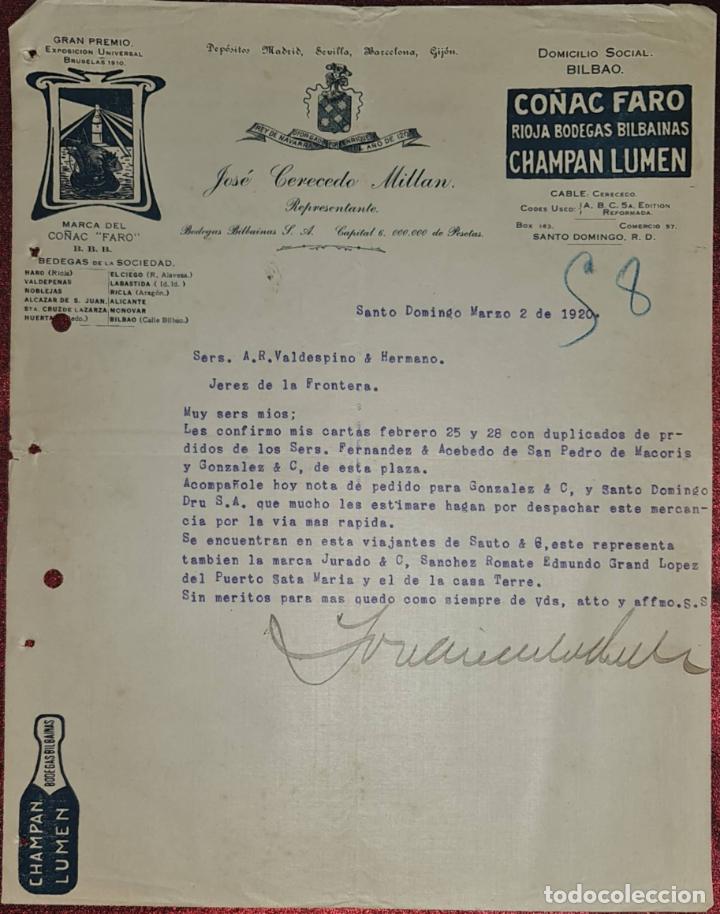 GRAN PREMIO.
EXPOSICION UNIVERSAL
BRUSELAS 1910.
MARCA DEL
COÑAC "FARO"
B. B. B.
BODEGAS DE LA SOCIEDAD.
HARO (Rioja) ELCIEGO (R. Alavesa.)
VALDEPEÑAS LABASTIDA ( Id. Id. )
NOBLEJAS RICLA (Aragón.)
ALCAZAR DE S. JUAN. ALICANTE
STA. CRUZ DE LA ZARZA. MONOVAR
HUERTA BILBAO (Calle Bilbao.)
Depósitos Madrid, Sevilla, Barcelona, Gijón.
REY DE NAVARRA OTORGADO ENRIQUE AÑO DE
José Cerecedo Millan.
Representante.
Bodegas Bilbainas S. A. Capital 6. 000.000 de Pesetas.
DOMICILIO SOCIAL.
BILBAO.
COÑAC FARO
RIOJA BODEGAS BILBAINAS
CHAMPAN LUMEN
CABLE. CERECECO.
CODES USED: A. B. C. 5A. EDITION
REFORMADA.
BOX 163. COMERCIO 57.
SANTO DOMINGO, R. D.
58
Santo Domingo Marzo 2 de 1920.
Sers. A.R.Valdespino & Hermano.
Jerez de la Frontera.
Muy sers mios;
Les confirmo mis cartas febrero 25 y 28 con duplicados de pr-
didos de los Sers. Fernandez & Acebedo de San Pedro de Macoris
y Gonzalez & C, de esta plaza.
Acompañole hoy nota de pedido para Gonzalez & C, y Santo Domingo
Dru S.A. que mucho les estimare hagan por despachar este mercan-
cia por la via mas rapida.
Se encuentran en esta viajantes de Sauto & G,este representa
tambien la marca Jurado & C, Sanchez Romate Edmundo Grand Lopez
del Puerto Sata Maria y el de la casa Terre.
Sin meritos para mas quedo como siempre de vds, atto y affmo.S.S
BODEGAS BILBAINAS
CHAMPAN
LUMEN
todocoleccion.net